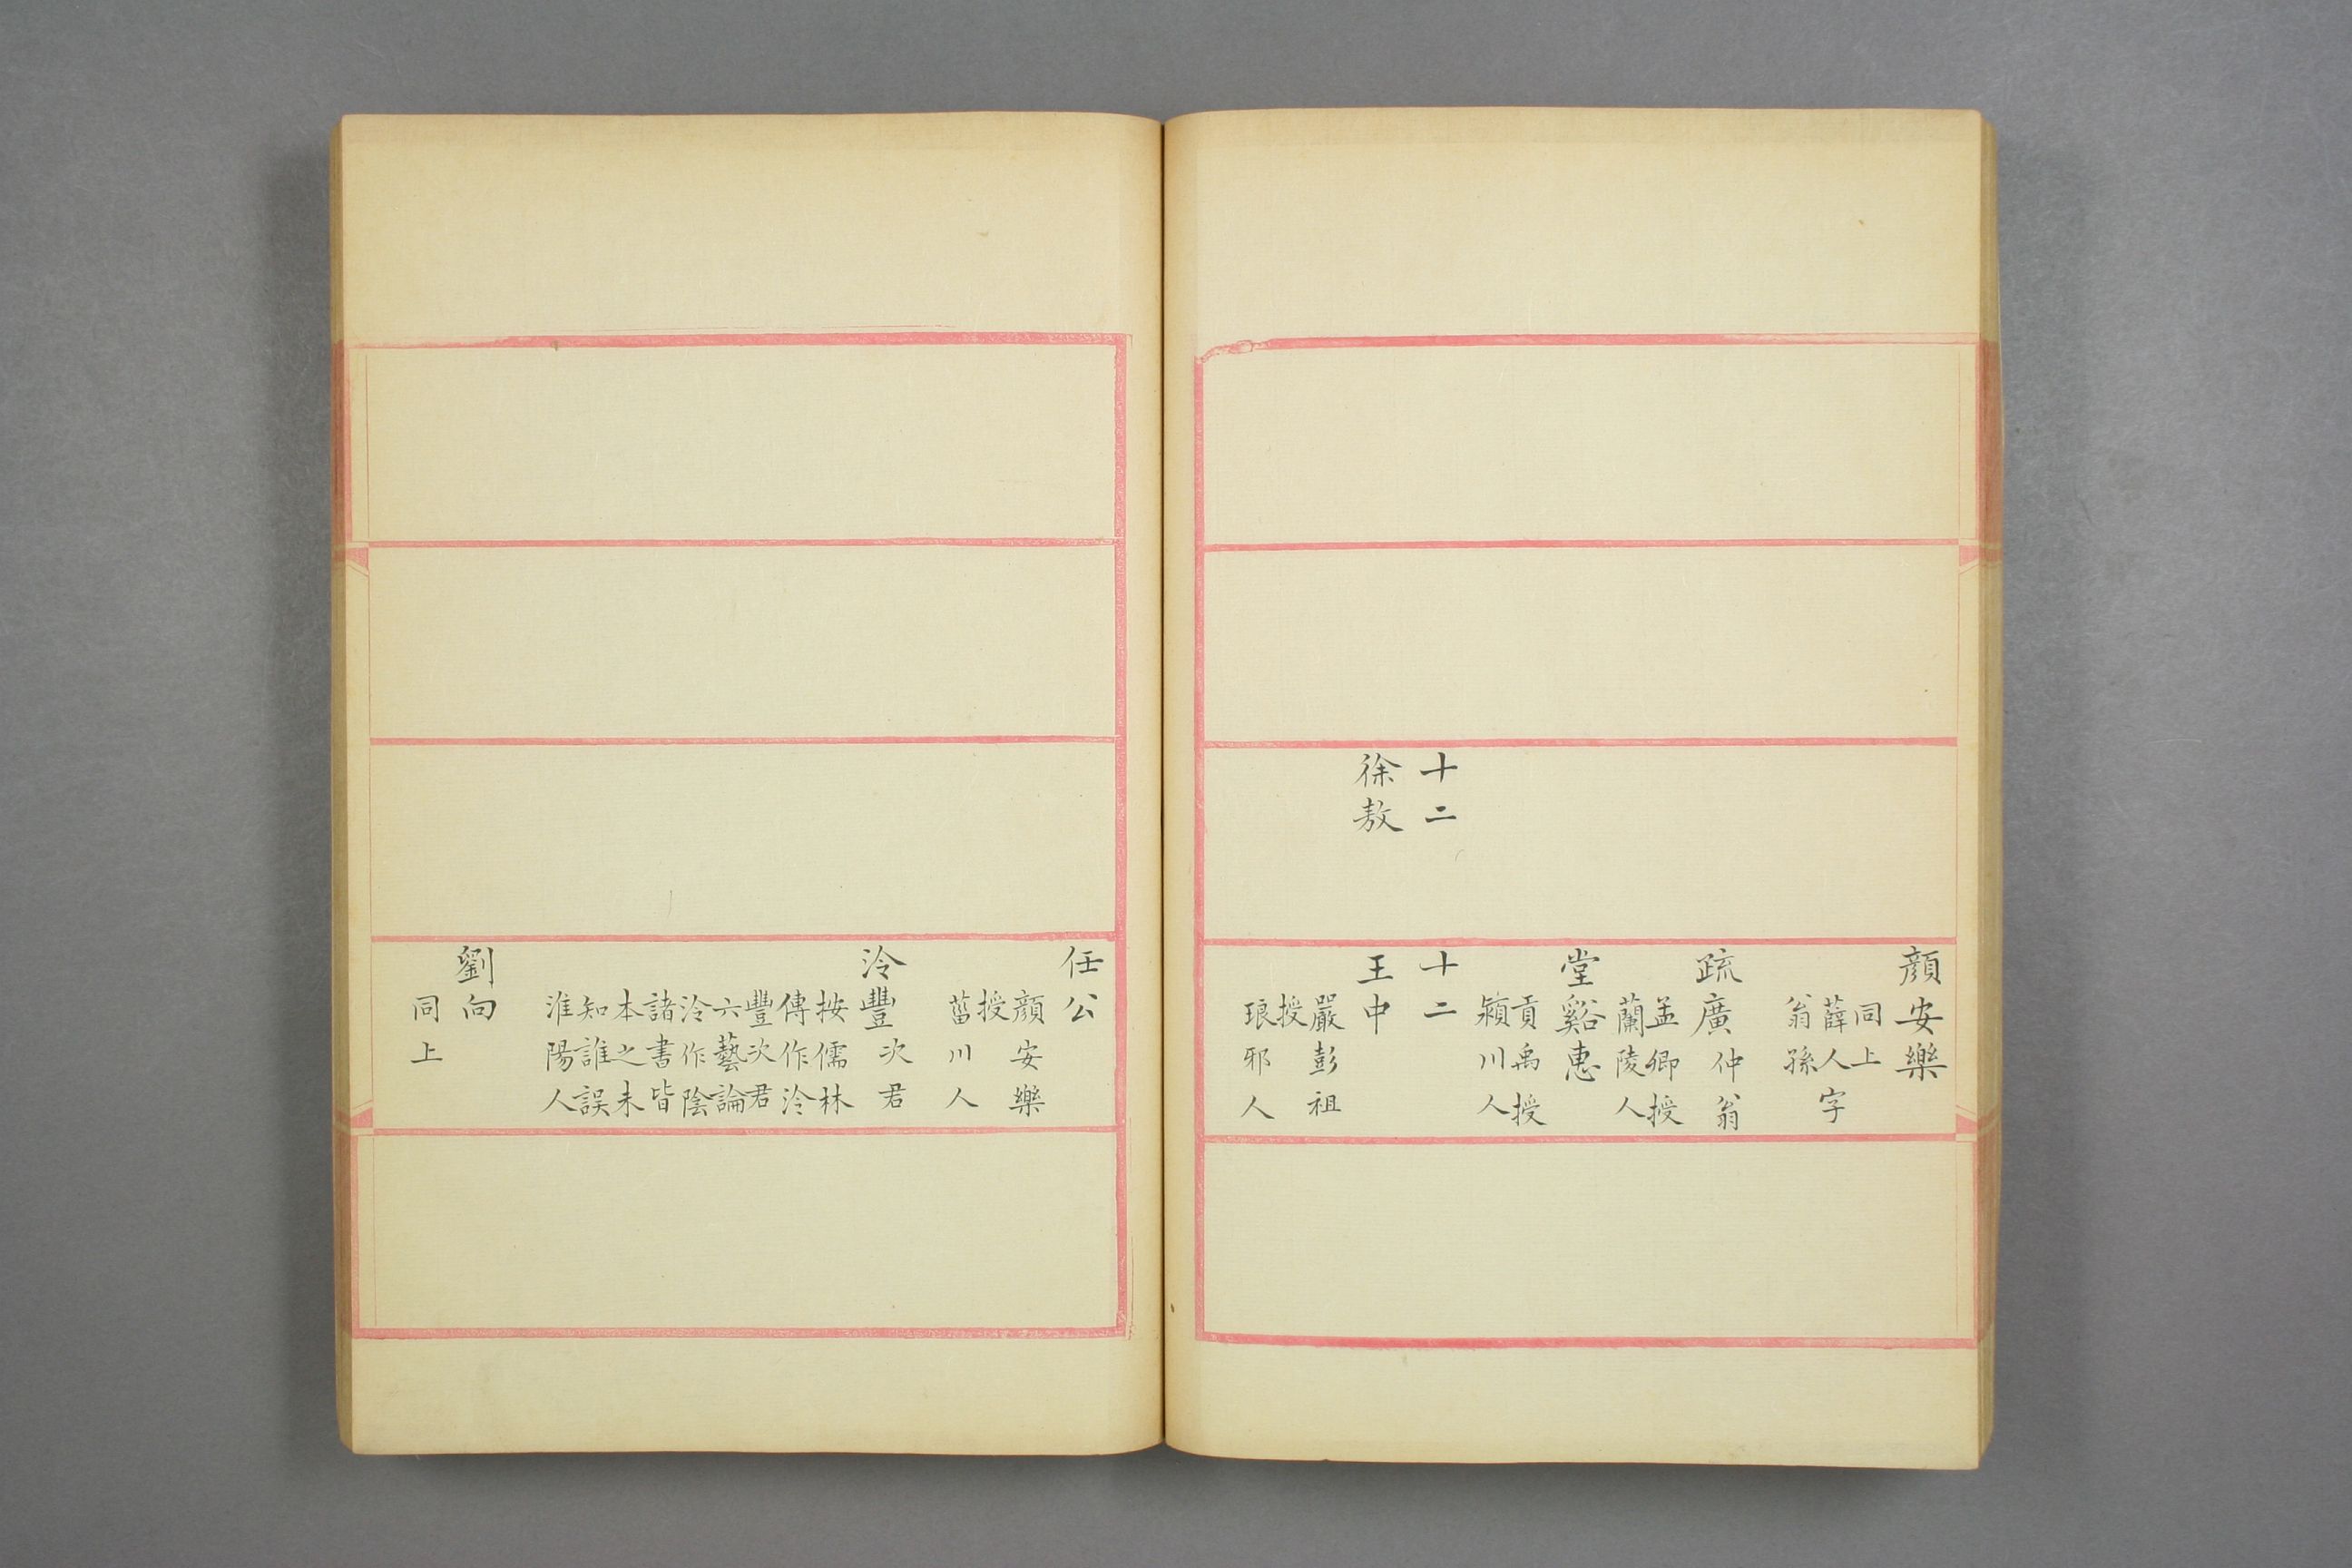 十二
徐敖
顏安樂
同上
薛人字
翁孫
疏廣仲翁
孟卿授
蘭陵人
堂谿惠
貢禹授
潁川人
十二
王中
嚴彭祖
授
琅邪人
任公
顏安樂
授
菑川人
泠豐次君
按儒林
傳作泠
豐次君
六藝論
泠作陰
諸書皆
本之未
知誰誤
淮陽人
劉向
同上